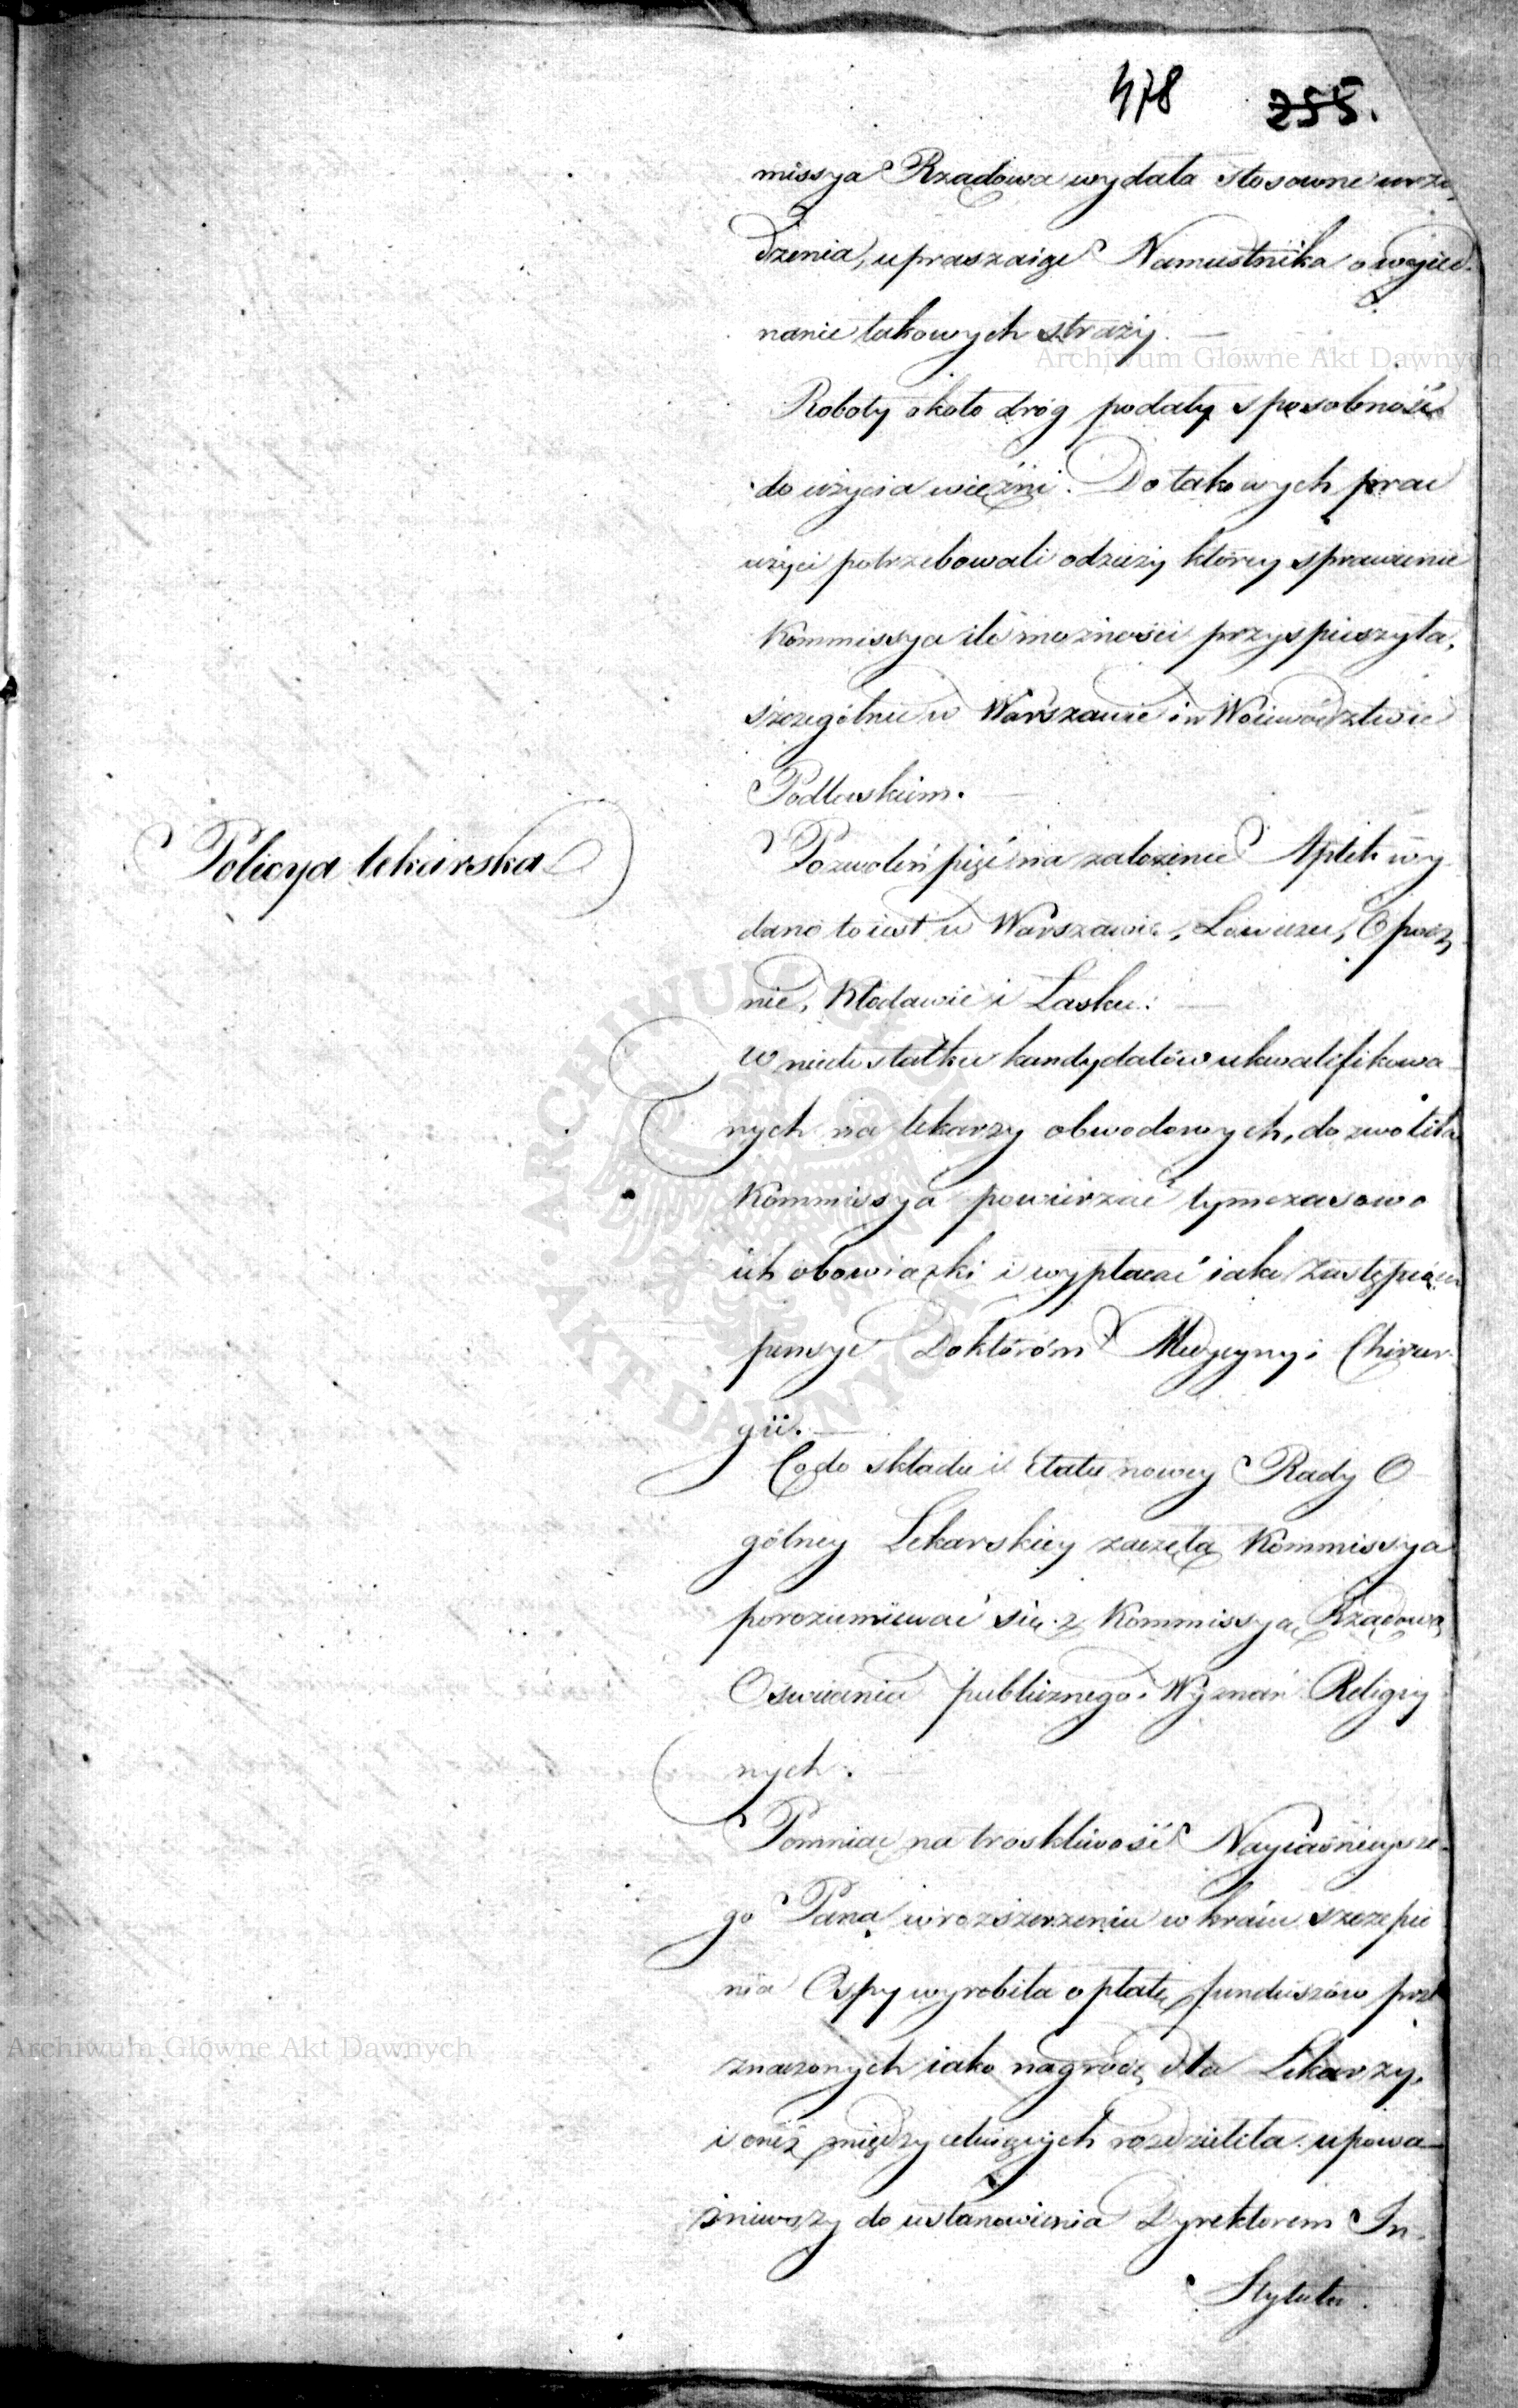 478 255.
missya Rządowa wydała stosowne urzą
dzenia, upraszaiąc Namiestnika o wyied-
nanie takowych straży. —
Roboty około dróg podały sposobność
do użycia więźni. Do takowych prac
użyci potrzebowali odzieży którey sprawienie
Kommissya ile możności przyspieszyła,
szczególniey w Warszawie i w Woiewództwie
Podlaskiem.
Policya lekarska
Pozwoleń pięć na założenie Aptek wy
dano to iest w Warszawie, Łowiczu, Opocz
nie, Kłodawie i Łasku. —
W niedostatku kandydatów ukwalifikowa
nych na lekarzy obwodowych, dozwoliła
Kommissya powierzać tymczasowo
ich obowiązki i wypłacać iako Zastępcom
pensye Doktorom Medycyny i Chirur-
gii. —
Co do składu i Etatu nowey Rady O
gólney Lekarskiey zaczęła Kommissya
porozumiewać się z Kommissyą Rządową
Oświecenia publicznego i Wyznań Religiy
nych.
Pomniąc na troskliwość Nayiaśnieysze-
go Pana w rozszerzeniu w kraiu szczepie
nia Ospy wyrobiła opłatę funduszów prze
znaczonych iako nagrodę dla Lekarzy,
i oneż między celuiących rozdzieliła upowa-
żniwszy do ustanowienia Dyrektorem In-
stytutu
Archiwum Główne Akt Dawnych
Archiwum Główne Akt Dawnych
ARCHIWUM GŁÓWNE AKT DAWNYCH